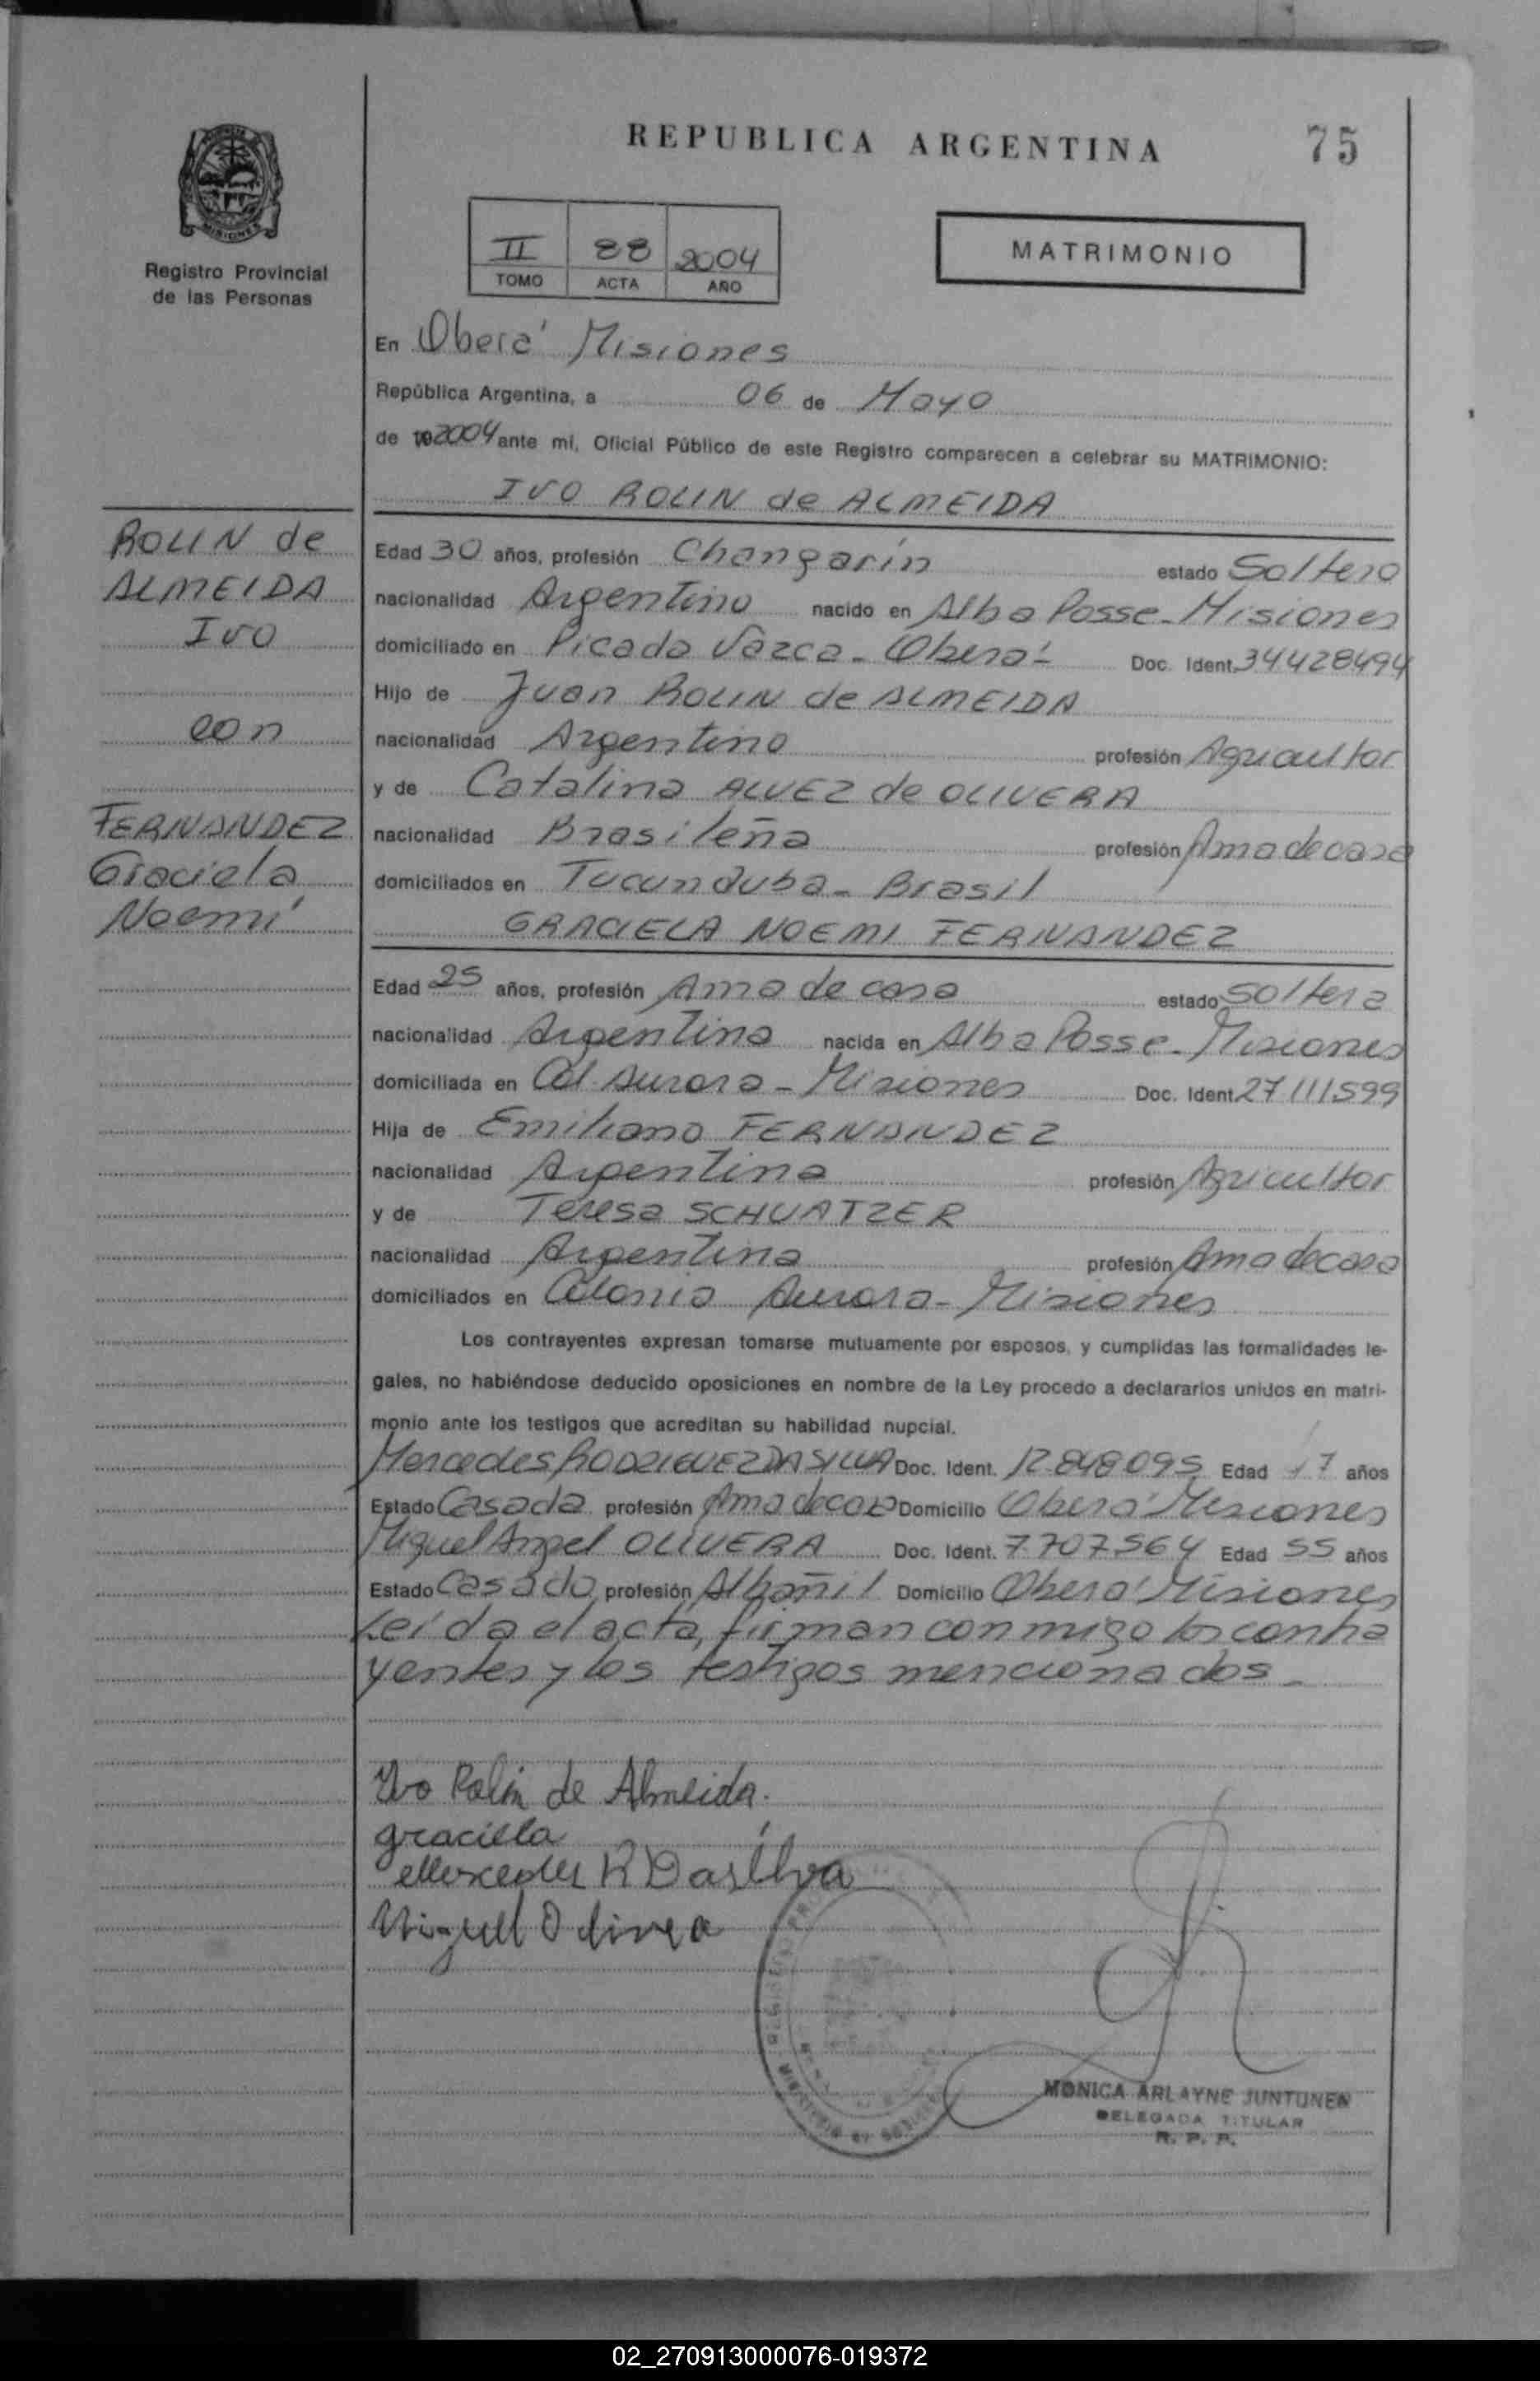 REPUBLICA ARGENTINA
75
MISIONES
Registro Provincial
de las Personas
II 88 2004
TOMO ACTA AÑO
MATRIMONIO
En Oberá Misiones
República Argentina, a 06 de Mayo
de 19 2004 ante mí, Oficial Público de este Registro comparecen a celebrar su MATRIMONIO:
IVO ROLIN de ALMEIDA
ROLIN de
ALMEIDA
Ivo
con
FERNANDEZ
Graciela
Noemí
Edad 30 años, profesión Changarín estado Soltero
nacionalidad Argentino nacido en Alba Posse - Misiones
domiciliado en Picada Vazca - Oberá - Doc. Ident. 34428494
Hijo de Juan ROLIN de ALMEIDA
nacionalidad Argentino profesión Agricultor
y de Catalina ALVEZ de OLIVERA
nacionalidad Brasileña profesión Ama de casa
domiciliados en Tucunduba - Brasil
GRACIELA NOEMI FERNANDEZ
Edad 25 años, profesión Ama de casa estado Soltera
nacionalidad Argentina nacida en Alba Posse - Misiones
domiciliada en Col. Aurora - Misiones Doc. Ident. 27111599
Hija de Emiliano FERNANDEZ
nacionalidad Argentina profesión Agricultor
y de Teresa SCHUATZER
nacionalidad Argentina profesión Ama de casa
domiciliados en Colonia Aurora - Misiones
Los contrayentes expresan tomarse mutuamente por esposos, y cumplidas las formalidades le-
gales, no habiéndose deducido oposiciones en nombre de la Ley procedo a declararlos unidos en matri-
monio ante los testigos que acreditan su habilidad nupcial.
Mercedes RODRIGUEZ DA SILVA Doc. Ident. 12.848095 Edad años
Estado Casada profesión Ama de casa Domicilio Oberá Misiones
Miguel Angel OLIVERA Doc. Ident. 7.707.564 Edad 55 años
Estado Casado profesión Albañil Domicilio Oberá Misiones
Leída el acta, firman conmigo los contra
yentes y los testigos mencionados -
Ivo Rolin de Almeida.
graciela
Mercedes R Dasilva
Miguel Olivera
MONICA ARLAYNE JUNTUNEN
DELEGADA TITULAR
R. P. P.
02_270913000076-019372